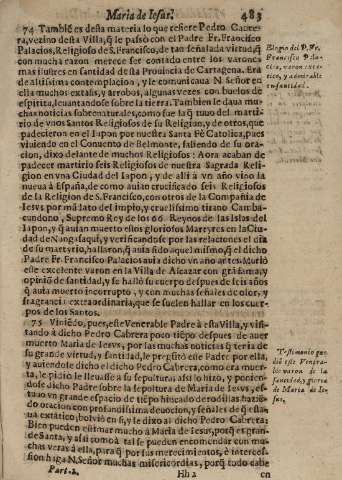 Maria de Iesus. 483
74 Tambiē es desta materia lo que refiere Pedro Cabre-
ra, vezino desta Villa, q̃ le passò con el Padre Fr. Francisco
Palacios, Religioso de S. Francisco, de tan señalada virtud, q̃
con mucha razon merece ser contado entre los varones
mas ilustres en santidad desta Provincia de Cartagena. Era
de altissima contemplacion, y le comunicava N. Señor en
ella muchos extasis, y arrobos, algunas vezes con buelos de
espiritu, levantandose sobre la tierra. Tambien le dava mu-
chas noticias sobrenaturales, como fue la q̃ tuvo del marti-
rio de unos Santos Religiosos de su Religion, y de otros, que
padecieron en el Iapon por nuestra Santa Fè Catolica, pues
viviendo en el Convento de Belmonte, saliendo de su ora-
cion, dixo delante de muchos Religiosos: Aora acaban de
padecer martirio seis Religiosos de nuestra Sagrada Reli-
gion en vna Ciudad del Iapon, y de alli à vn año vino la
nueva à España, de como avian crucificado seis Religiosos
de la Religion de S. Francisco, con otros de la Compañia de
Iesus por mādato del impio, y cruelissimo tirano Camba-
cundono, Supremo Rey de los 66. Reynos de las Islas del
Iapon, y q̃ avian muerto estos gloriosos Martyres en la Ciu-
dad de Nangasaqui, y verificandose por las relaciones el dia
de su martyrio, hallaron, q̃ avia sido aquel mismo, q̃ el dicho
Padre Fr. Francisco Palacios avia dicho vn año antes. Murió
este excelente varon en la Villa de Alcazar con grā fama, y
opiniō de santidad, y se hallò su cuerpo despues de seis años
q̃ avia muerto incorrupto, y con muchas señales de olor, y
fragrancia extraordinaria, que se suelen hallar en los cuer-
pos de los Santos.
75 Viniēdo, pues, este Venerable Padre à esta Villa, y visi-
tando à dicho Pedro Cabrera poco tiēpo despues de aver
muerto Maria de Iesus, por las muchas noticias q̃ tenia de
su grande virtud, y santidad, le pregūtò este Padre por ella,
y aviendole dicho el dicho Pedro Cabrera, como era muer-
ta, le pidio le llevasse à su sepultura, assi lo hizo, y ponien-
dose dicho Padre sobre la sepoltura de Maria de Iesus, es-
tuvo vn grande espacio de tiēpo hincado de rodillas haziē-
do oracion con profundissima devocion, y señales de q̃ esta-
va extatico; bolviò en si, y le dixo al dicho Pedro Cabrera:
Bien pueden estimar mucho à Maria de Iesus, porq̃ es gran-
de Santa, y assi como à tal se pueden encomendar con mu-
chas veras à ella, para q̃ por sus merecimientos, è interces-
sion haga N. Señor muchas misericordias, porq̃ todo cabe
Part. 2. Hh 2 en
Elogio del P. Fr.
Francisco Pala-
cios, varon exta-
tico, y admirable
en santidad.
Testimonio que
diò este Venera-
ble varon de la
santidad, y gloria
de Maria de Ie-
sus.